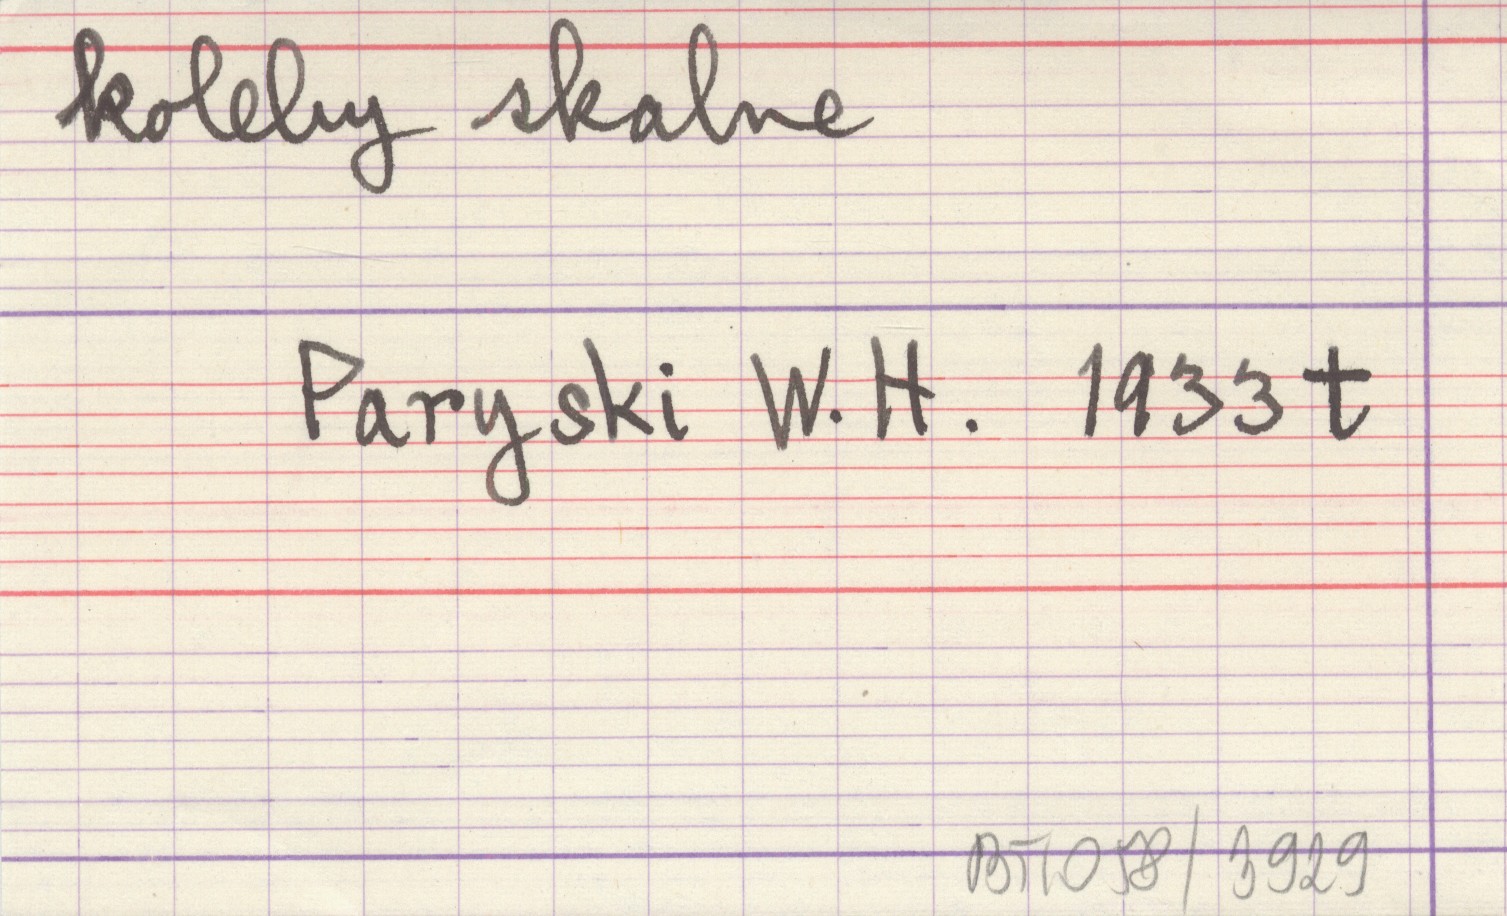 koleby skalne
Paryski W.H. 1933t
BTL058/3929